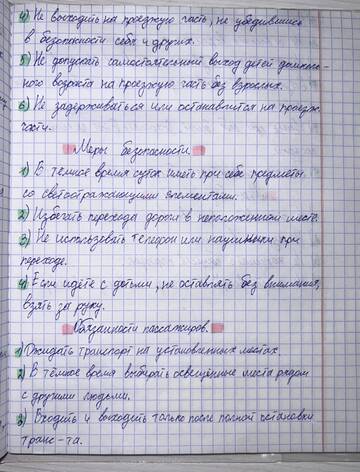 4) Не выходить на проезжую часть, не убедившись
в безопасности себя и других.
5) Не допускать самостоятельный выход детей дошколь-
ного возраста на проезжую часть без взрослых.
6) Не задерживаться или останавливатся на проезж.
части.
Меры безопасности.
1) В темное время суток иметь при себе предметы
со светоотражающими элементами.
2) Избегать перехода дороги в неположенном месте.
3) Не использовать телефон или наушники при
переходе.
4) Если идете с детьми, не оставлять без внимания,
взять за руку.
Обязанности пассажиров.
1) Ожидать транспорт на установленных местах.
2) В тёмное время выбирать освещённые места рядом
с другими людьми.
3) Входить и выходить только после полной остановки
транс-та.